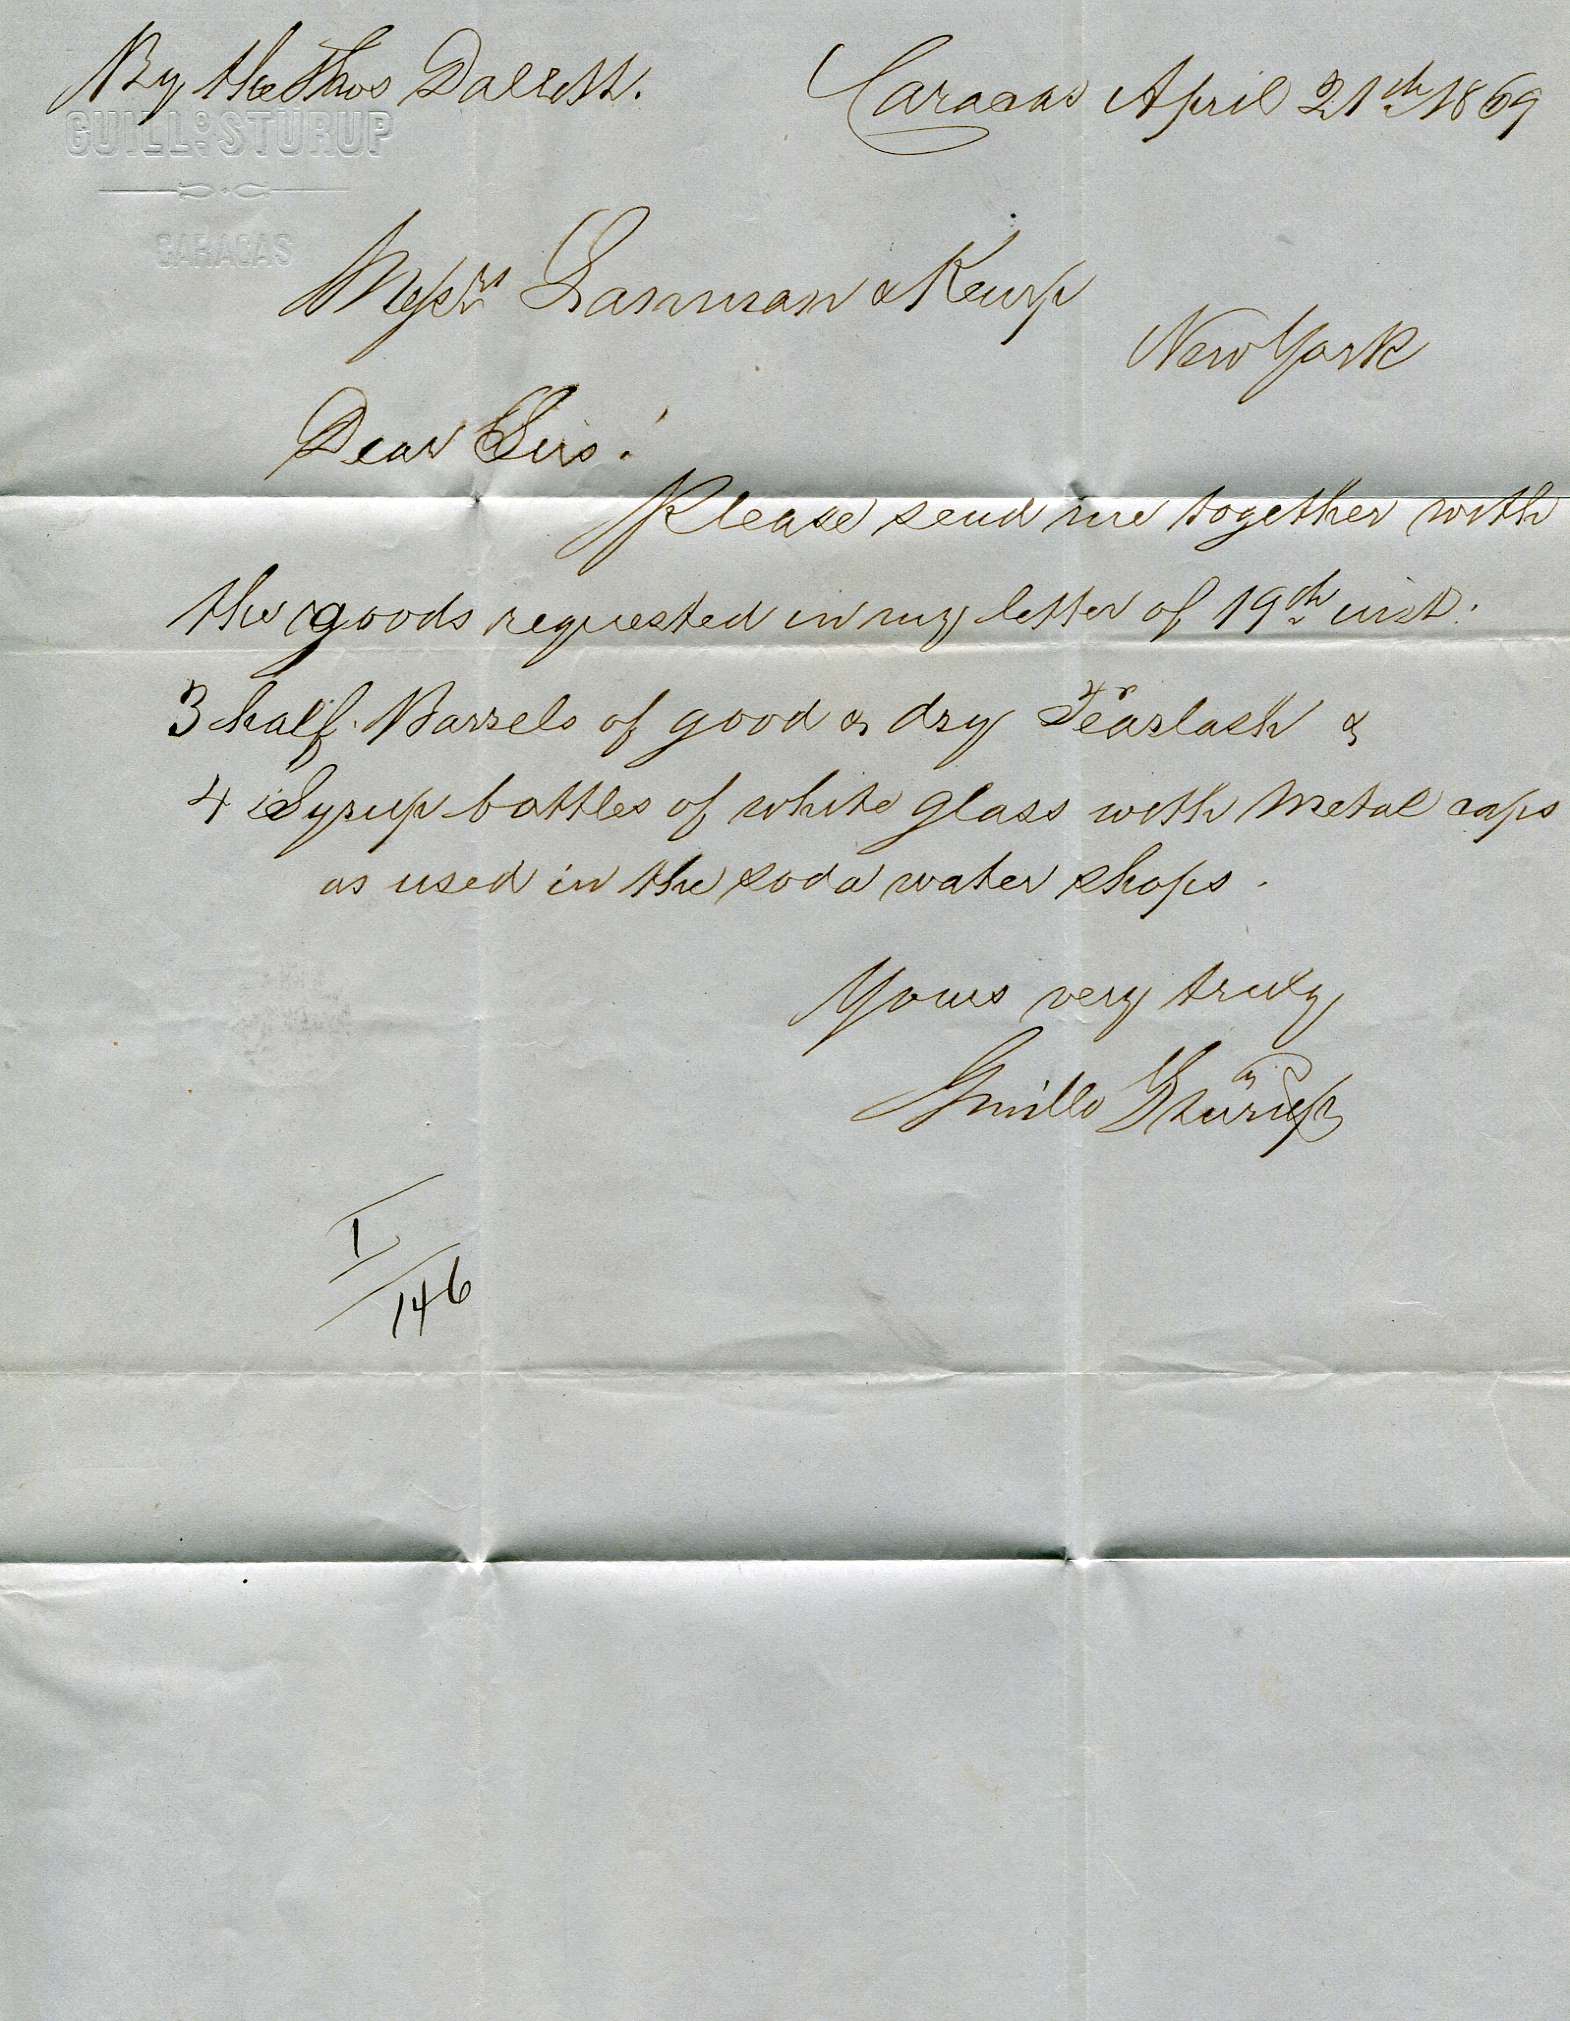 By the Thos Dallett.
Caracas April 21th 1869
GUILLO. STÜRUP
CARACAS
Messrs Lanman & Kemp
New York
Dear Sirs!
Please send me together with
the goods requested in my letter of 19th inst.
3 half Barrels of good & dry &
4 Syrup bottles of white glass with Metal caps
as used in the soda water shops.
Yours very truly
Guillo Stürup
1
146